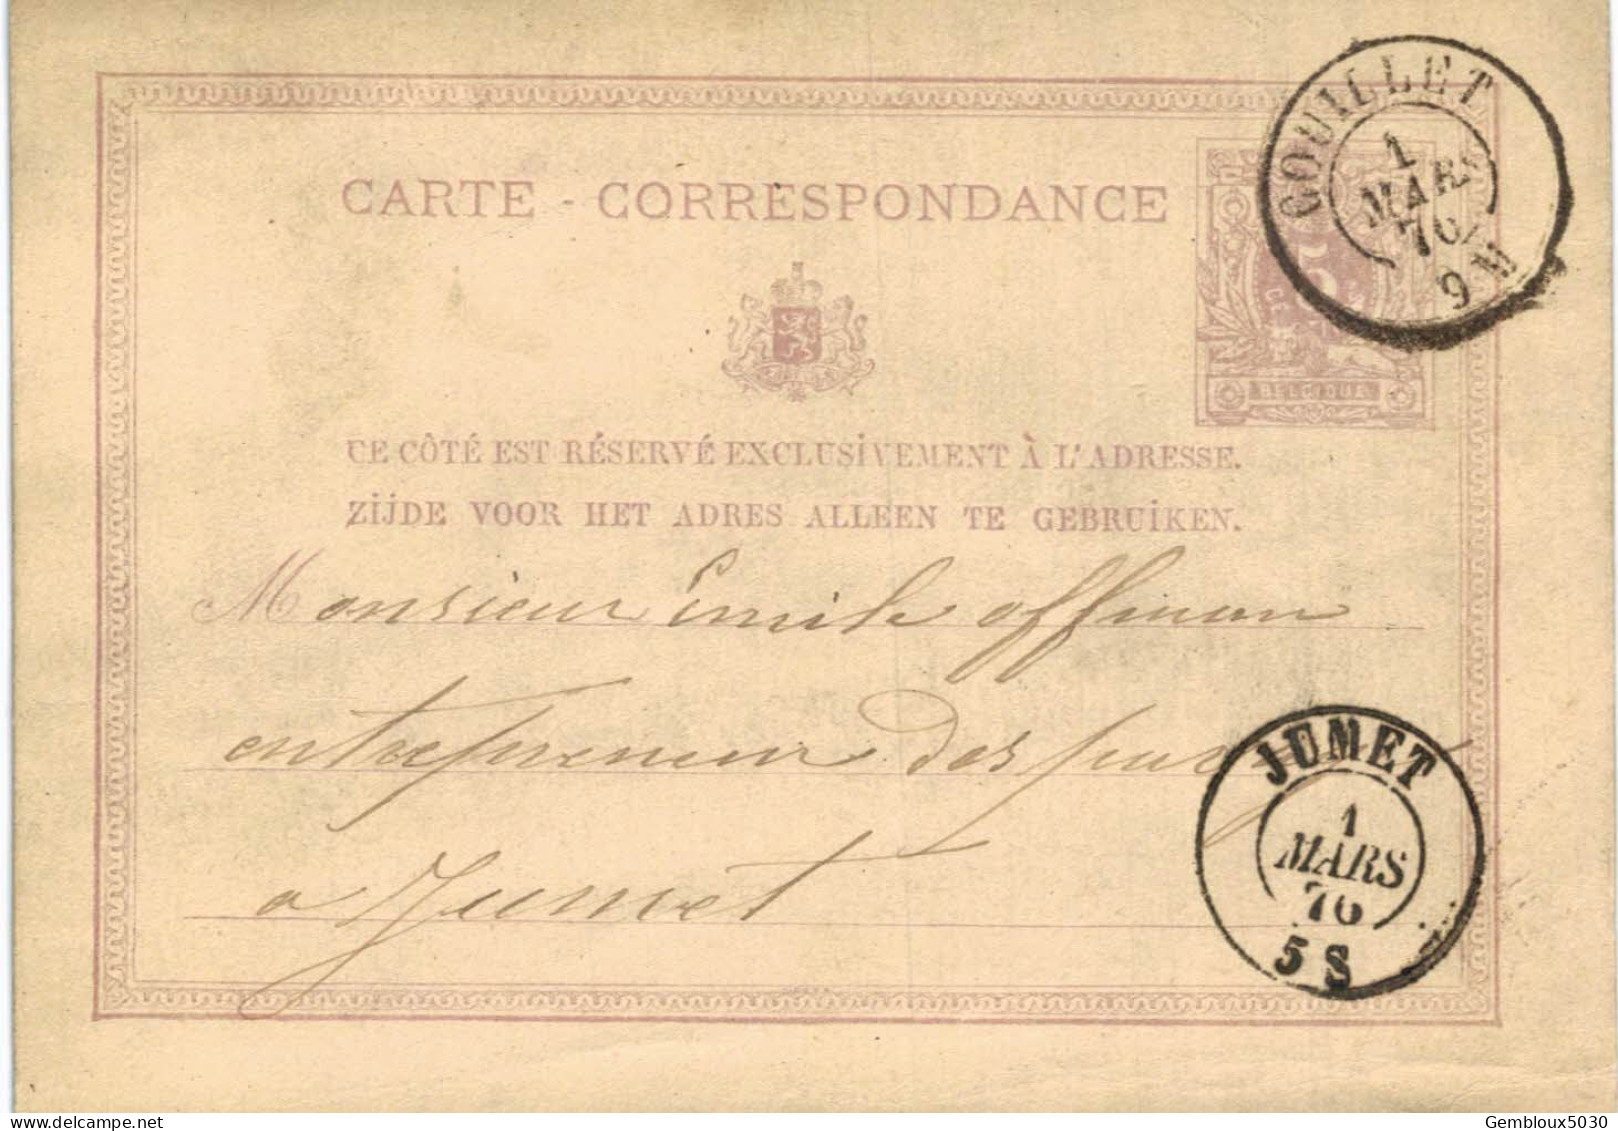 COUILLET
1
MARS
76
9 M
CARTE - CORRESPONDANCE
5
BELGIQUE
CE CÔTÉ EST RÉSERVÉ EXCLUSIVEMENT À L'ADRESSE.
ZIJDE VOOR HET ADRES ALLEEN TE GEBRUIKEN.
Monsieur Émile offman
entrepreneur des
a Jumet
JUMET
1
MARS
76
5 S
delcampe.net
Gembloux5030